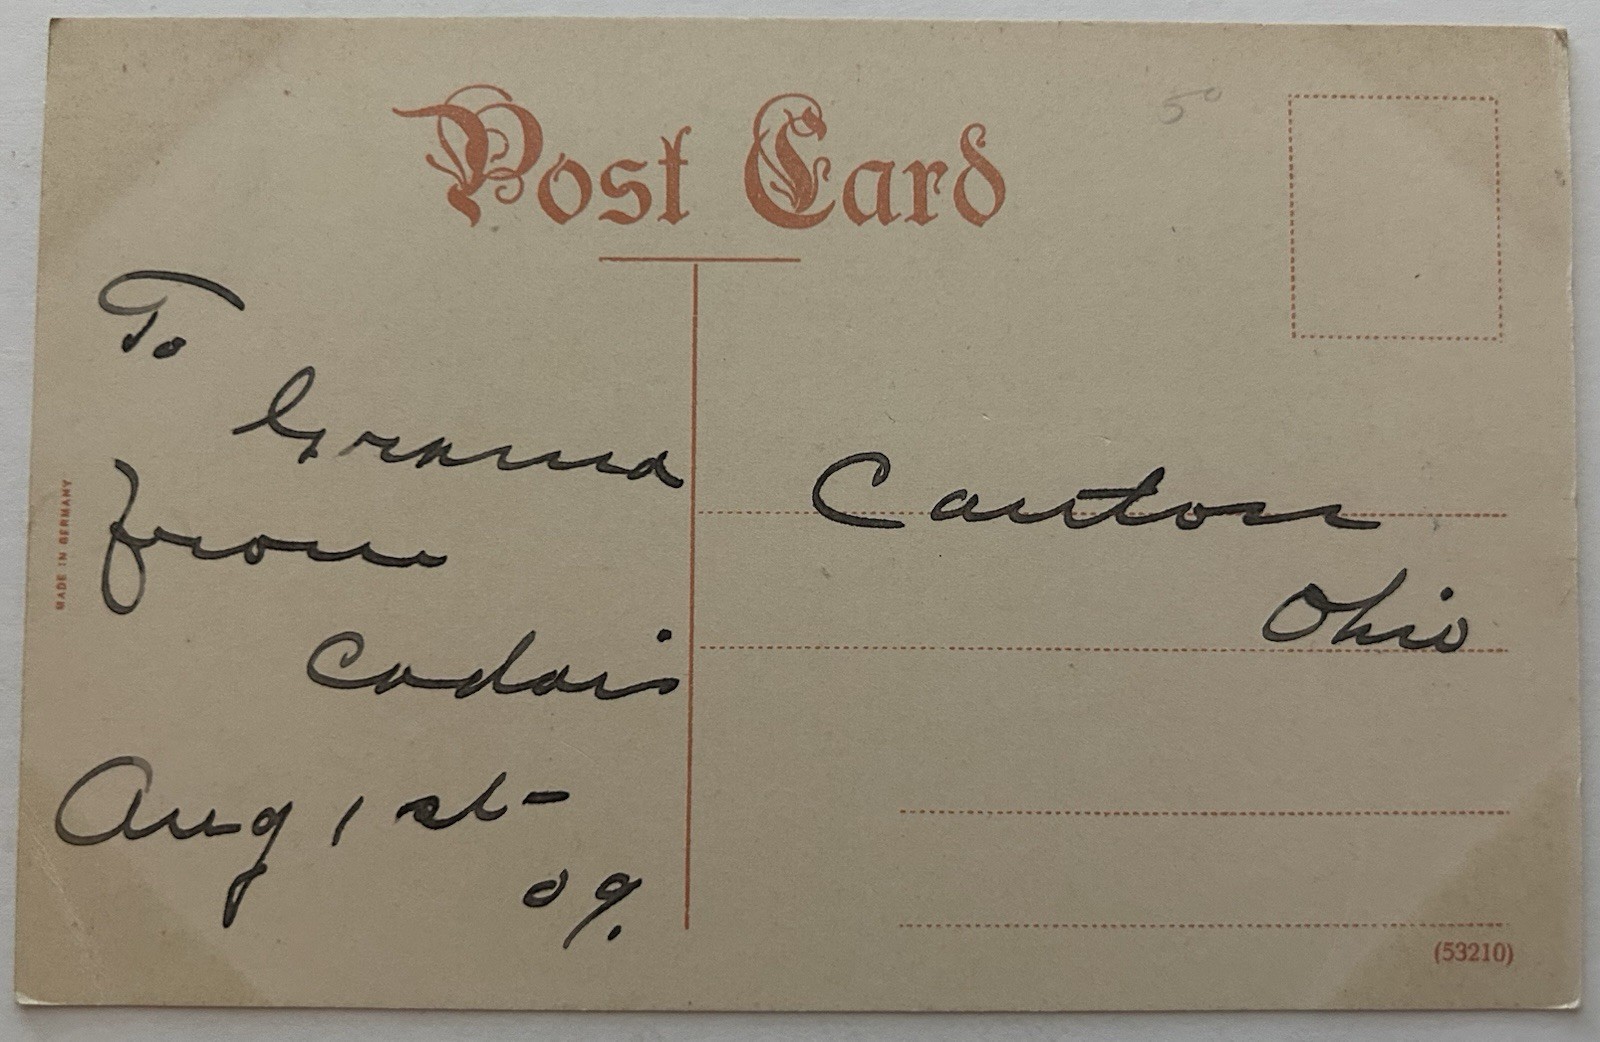 Post Card
5º
To
Grama
from
Aug 1st-
09.
Canton
Ohio
MADE IN GERMANY
(53210)